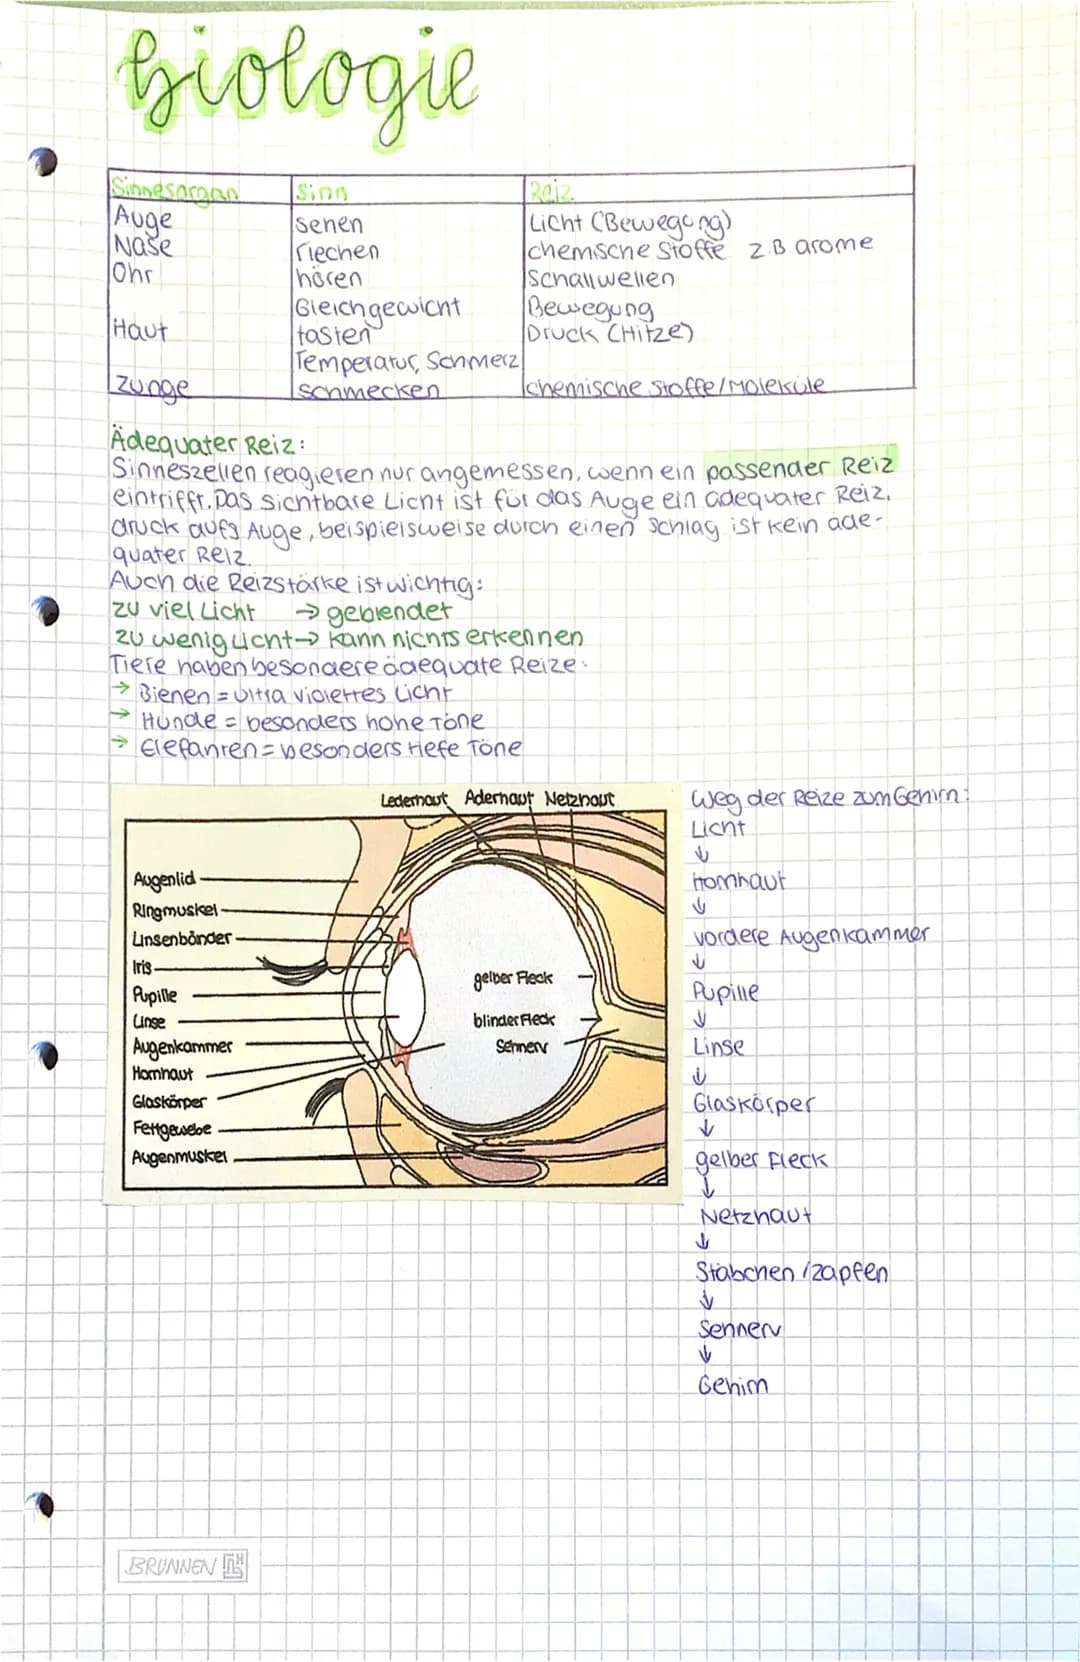 biologie
Sinnesorgan Sinn Reiz
Auge sehen Licht (Bewegung)
Nase riechen chemische Stoffe z.B arome
Ohr hören Schallwellen
Gleichgewicht Bewegung
Haut tasten Druck (Hitze)
Temperatur, Schmerz
Zunge schmecken chemische Stoffe/Moleküle
Ädequater Reiz:
Sinneszellen reagieren nur angemessen, wenn ein passender Reiz
eintrifft. Das sichtbare Licht ist für das Auge ein adequater Reiz,
druck aufs Auge, beispielsweise durch einen Schlag ist kein ade-
quater Reiz.
Auch die Reizstärke ist wichtig:
zu viel Licht → geblendet
zu wenig Licht → kann nichts erkennen
Tiere haben besondere ädequate Reize:
→ Bienen = ultra violettes Licht
→ Hunde = besonders hohe Töne
→ Elefanten = besonders tiefe Töne
Lederhaut Aderhaut Netzhaut
Augenlid
Ringmuskel
Linsenbänder
Iris
Pupille
Linse
Augenkammer
Hornhaut
Glaskörper
Fettgewebe
Augenmuskel
gelber Fleck
blinder Fleck
Sehnerv
Weg der Reize zum Gehirn:
Licht
↓
Hornhaut
↓
vordere Augenkammer
↓
Pupille
↓
Linse
↓
Glaskörper
↓
gelber Fleck
↓
Netzhaut
↓
Stäbchen / Zapfen
↓
Sehnerv
↓
Gehirn
BRUNNEN